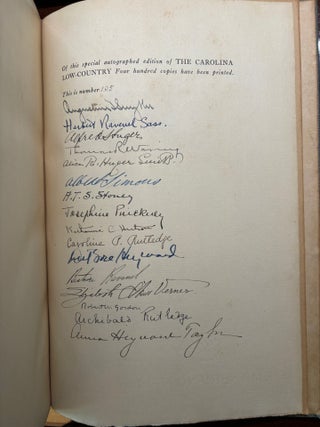 Of this special autographed edition of THE CAROLINA
LOW-COUNTRY Four hundred copies have been printed.
This is number 108
Augustine T. Smythe
Herbert Ravenel Sass.
Alfred Huger
Thomas R. Waring
Alice R. Huger Smith
Albert Simons
S. G. Stoney
Josephine Pinckney
Katharine C. Hutson
Caroline P. Rutledge
DuBose Heyward
Beatrice Ravenel
Elizabeth O'Neill Verner
Robt W. Gordon
Archibald Rutledge
Anna Heyward Taylor